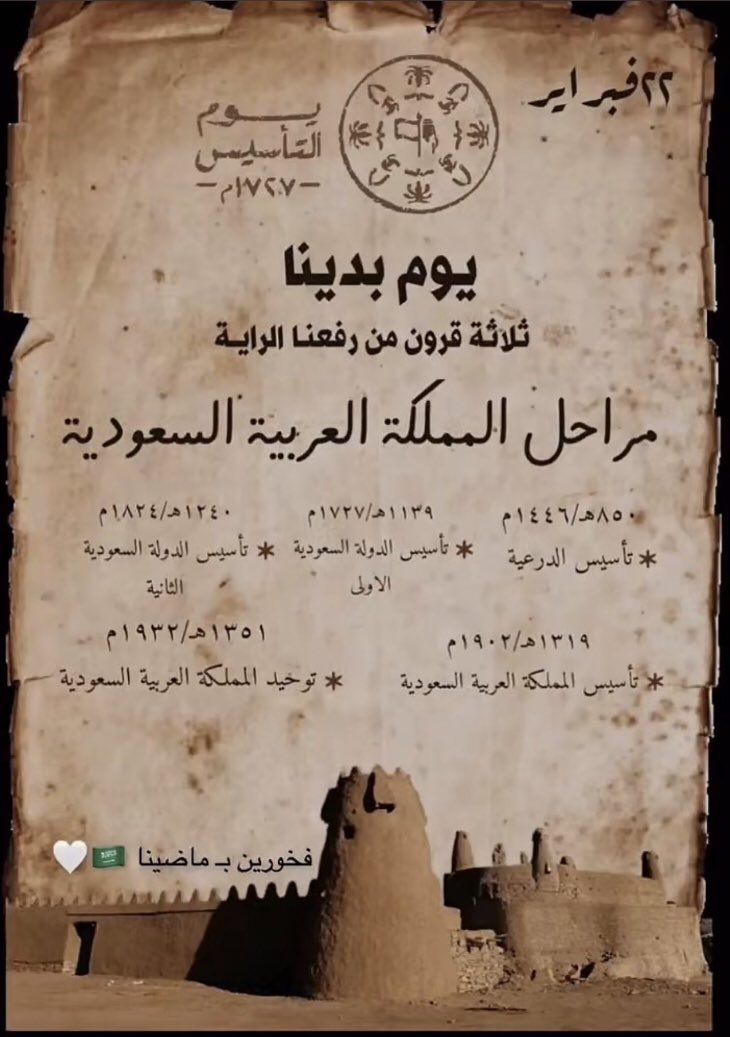 ٢٢ فبراير
يـــوم
التأسيس
١٧٢٧م
يوم بدينا
ثلاثة قرون من رفعنا الراية
مراحل المملكة العربية السعودية
٨٥٠هـ/١٤٤٦م
* تأسيس الدرعية
١١٣٩هـ/١٧٢٧م
* تأسيس الدولة السعودية
الاولى
١٢٤٠هـ/١٨٢٤م
* تأسيس الدولة السعودية
الثانية
١٣١٩هـ/١٩٠٢م
* تأسيس المملكة العربية السعودية
١٣٥١هـ/١٩٣٢م
* توحيد المملكة العربية السعودية
فخورين بـ ماضينا 🇸🇦🤍